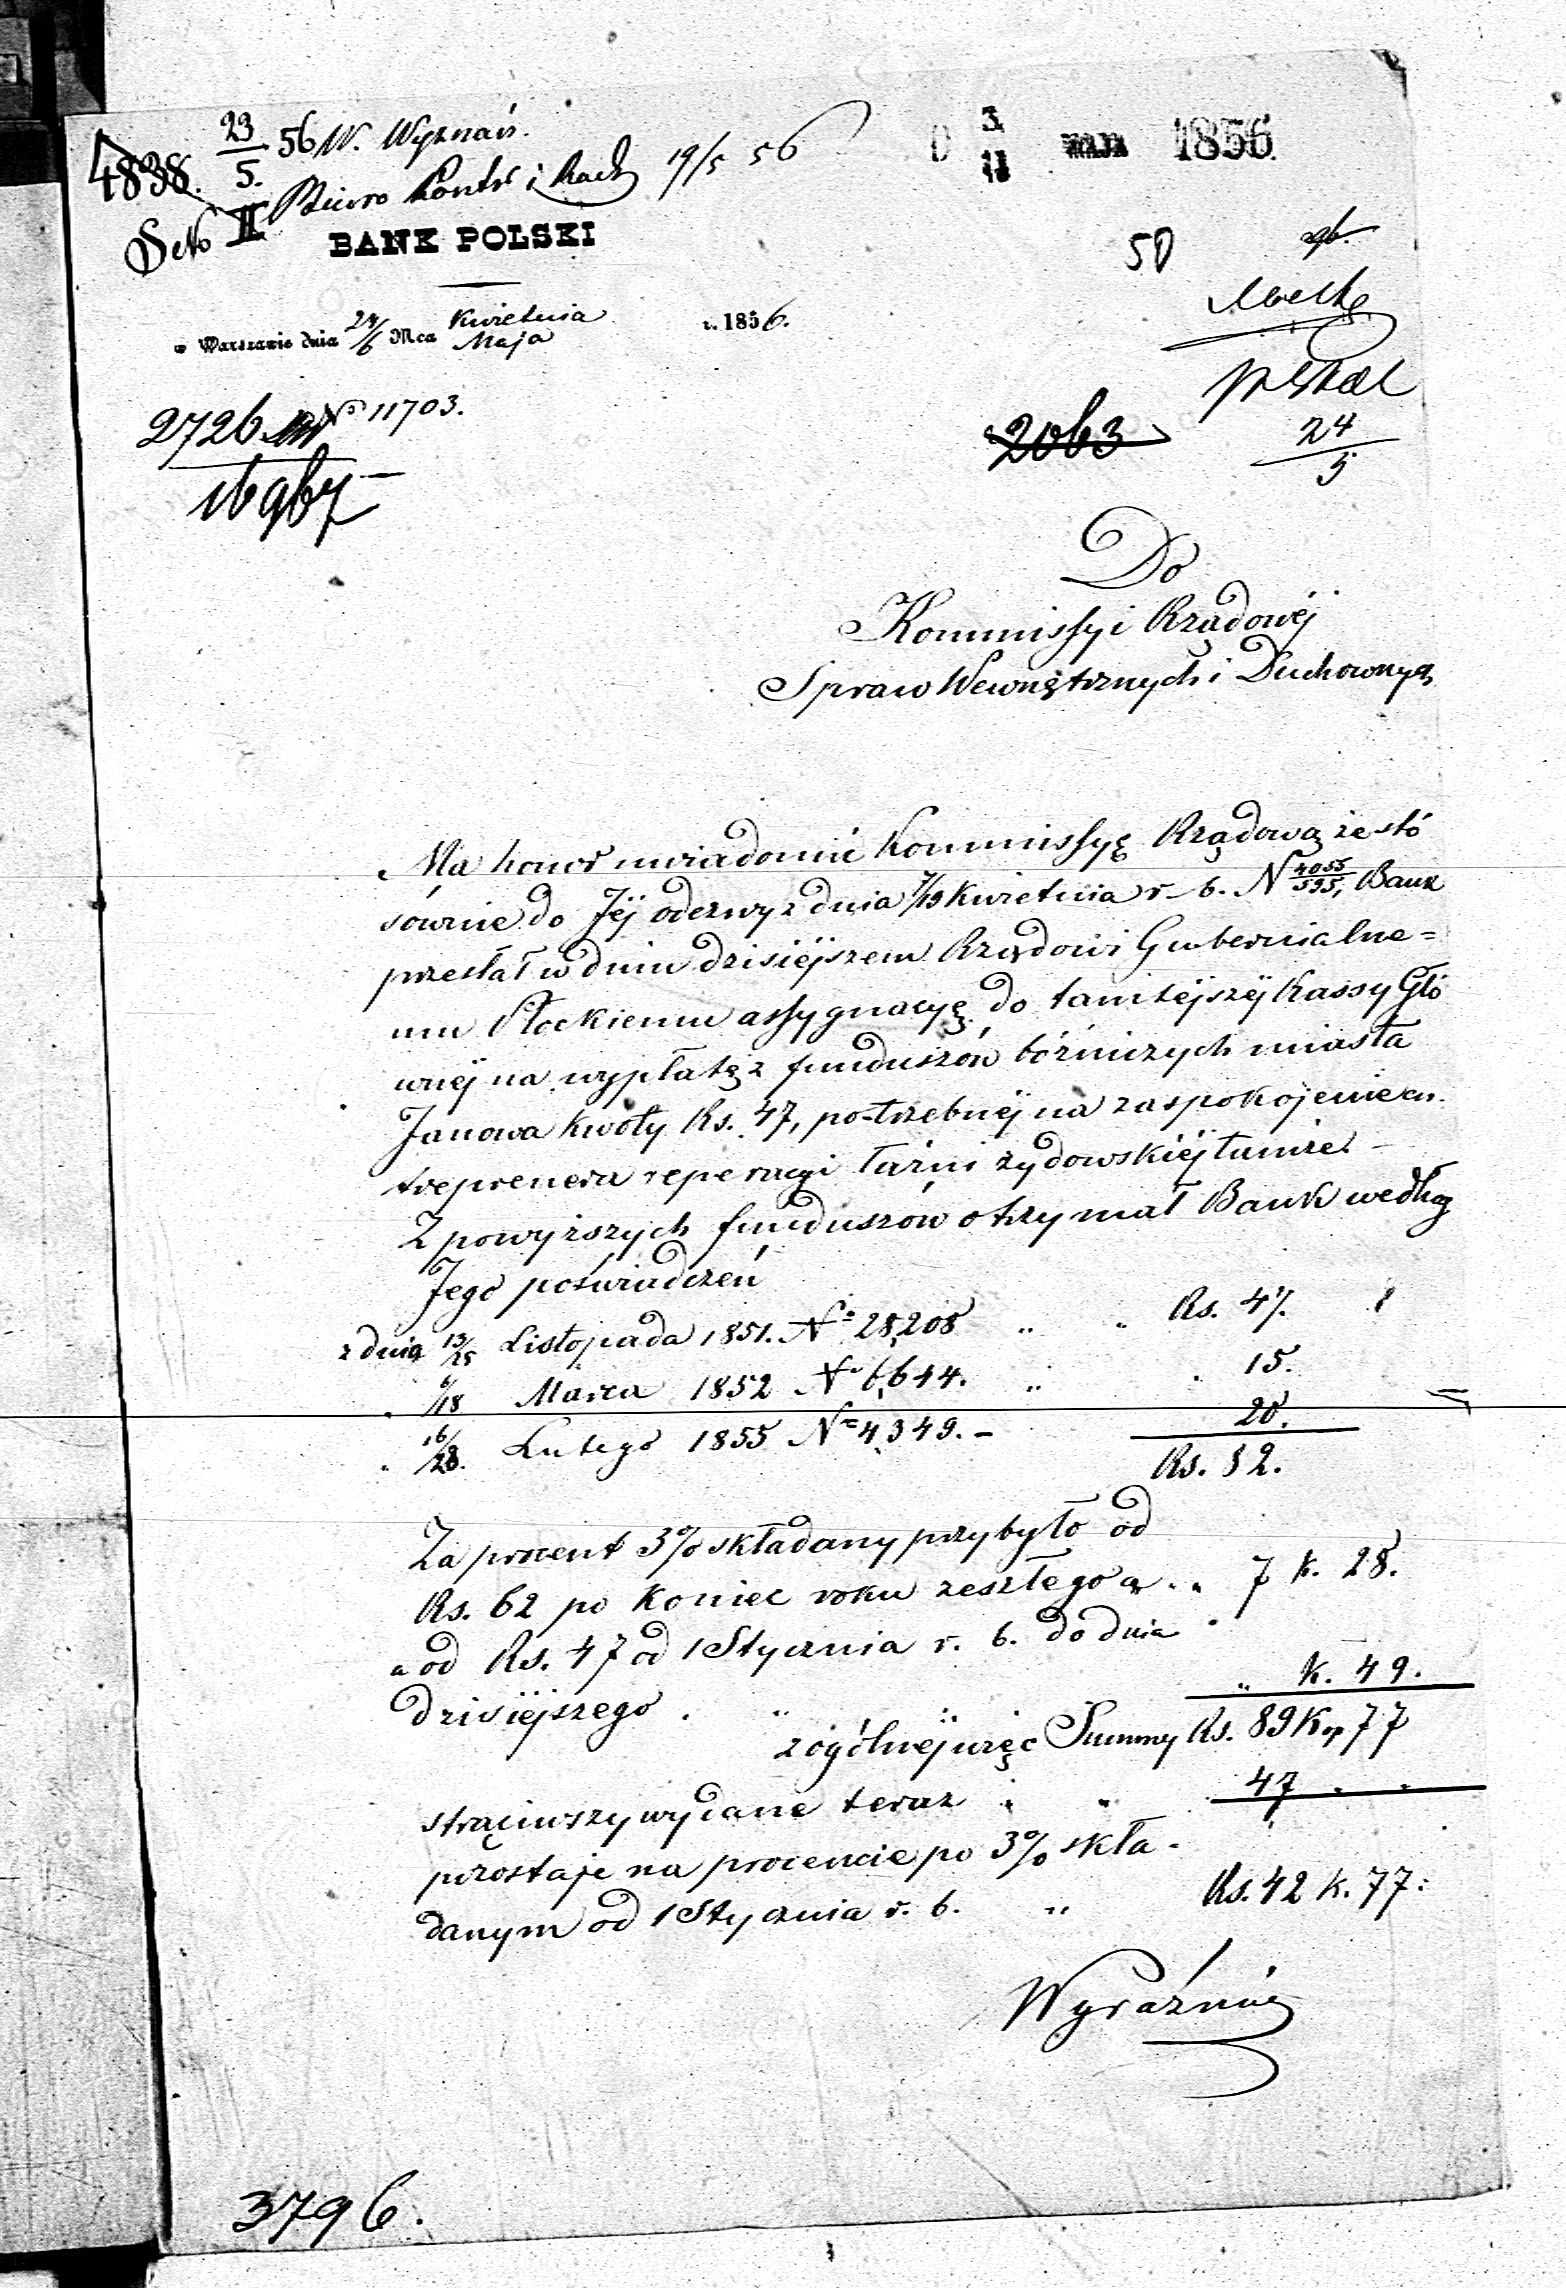 4838.
23/5. 56 W. Wyznań.
Biuro Kontr i Rach 19/5 56
Sekc II
D 3/15 MAJA 1856.
BANK POLSKI
w Warszawie dnia 24/6 Mca Kwietnia Maja r. 1856.
50
24/5
2726 No 11703.
2063
Do
Kommissyi Rządowéj
Spraw Wewnętrznych i Duchownych
Ma honor uwiadomić Kommissyę Rządową że sto
sównie do Jéj odezwy z dnia 7/19 Kwietnia r. b. N 4055/595, Bank
przesłał w dniu dzisiéjszem Rządowi Gubernialne=
mu Płockiemu assygnacyę do tamtéjszéj Kassy Głó
wnéj na wypłatę z funduszów bóżniczych miasta
Janowa kwoty Rs. 47, potrzebnéj na zaspokojenie en
treprenera reperacyi łaźni żydowskiéj tamże.
Z powyższych funduszów otrzymał Bank według
Jego poświadczeń
z dnia 13/25 Listopada 1851. No 28,208 " " Rs. 47.
" 6/18 Marca 1852 No 6,644. " " 15.
" 16/28. Lutego 1855 No 4,349. - 20.
Rs. 82.
Za procent 3% składany przybyło od
Rs. 62 po koniec roku zeszłego " " 7 k. 28.
a od Rs. 47 od 1 Stycznia r. b. do dnia
dzisiéjszego . " " " k. 49.
z ogólnéj więc Summy Rs. 89 Kop 77
strąciwszy wydane teraz " " 47 " "
pozostaje na procencie po 3% skła-
danym od 1 Stycznia r. b. " Rs. 42 k. 77:
Wyraźniéj
3796.